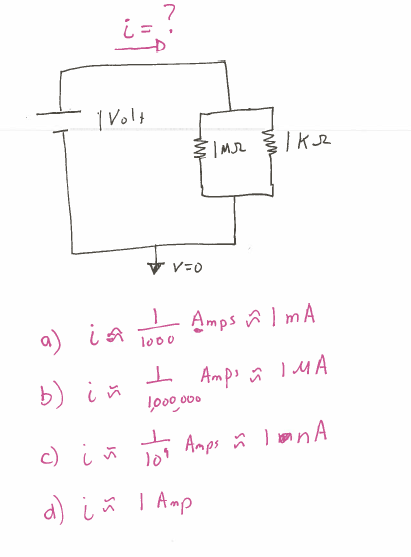 i = ?
1 Volt
1MΩ
1KΩ
V=0
a) i ≈ 1/1000 Amps ≈ 1 mA
b) i ≈ 1/1,000,000 Amps ≈ 1 MA
c) i ≈ 1/10⁹ Amps ≈ 1 nA
d) i ≈ 1 Amp